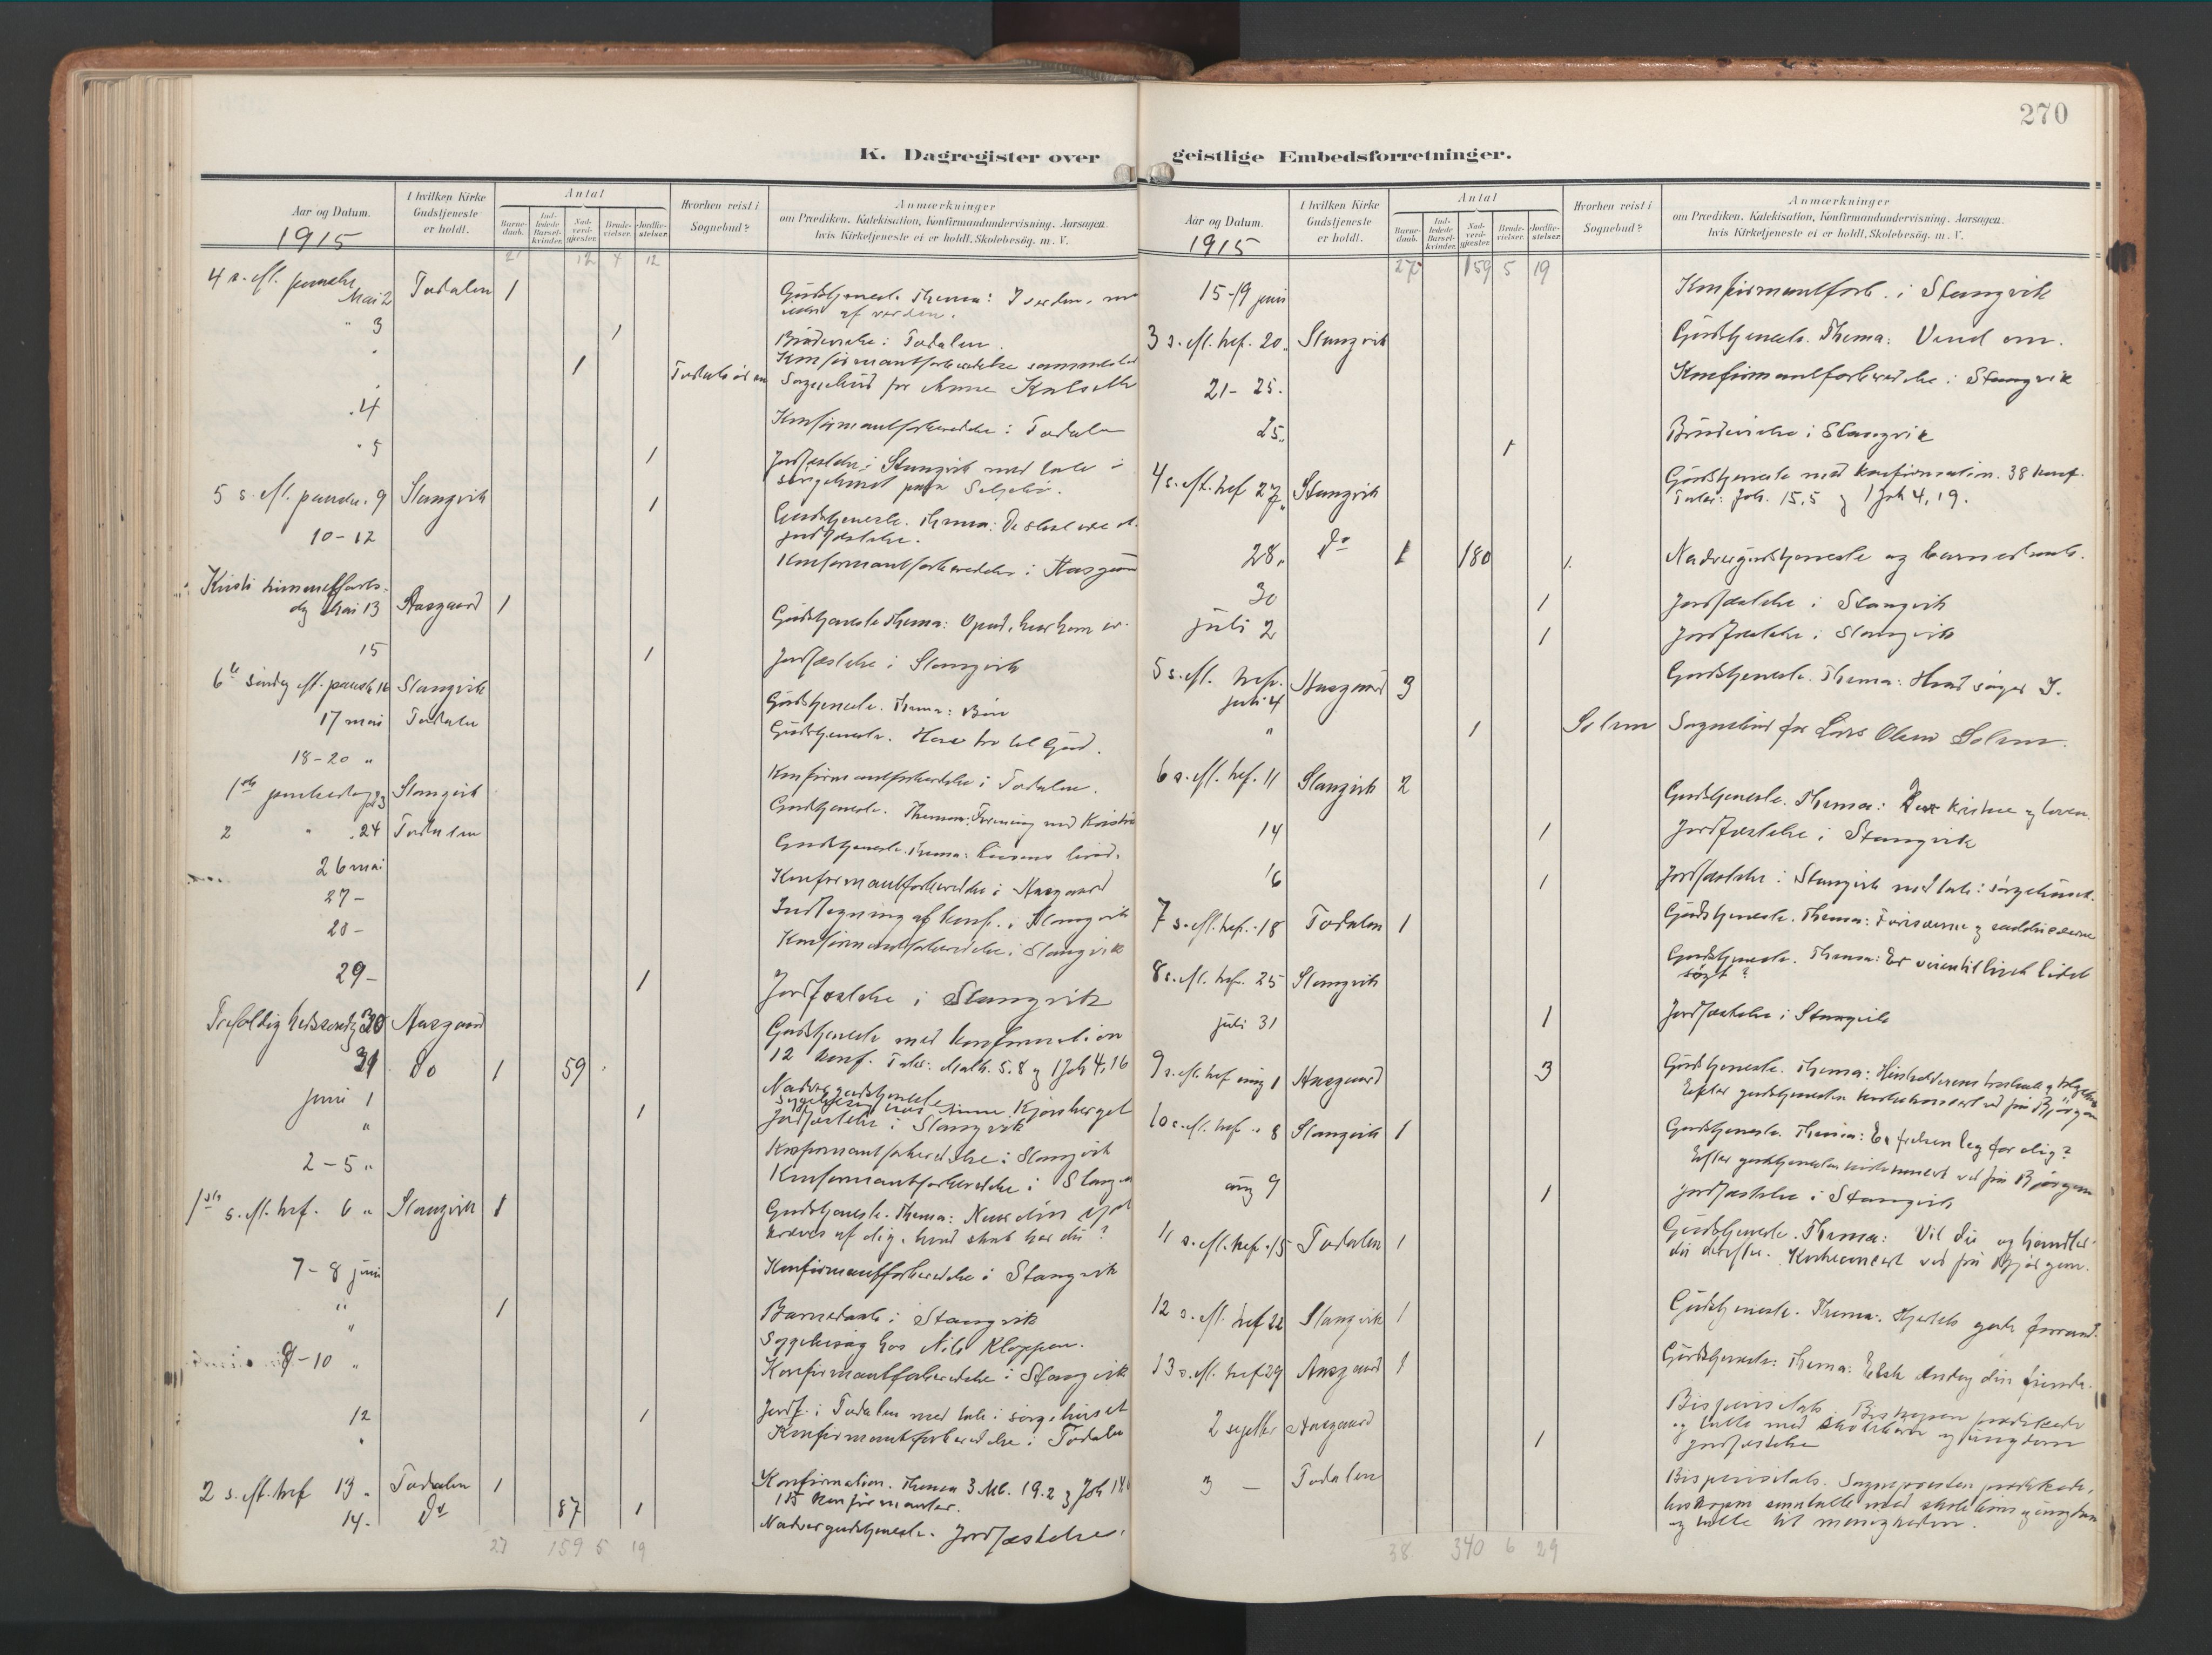 270
K. Dagregister over geistlige Embedsforretninger.
Aar og Datum.
1915
I hvilken Kirke Gudstjeneste er holdt.
Antal
Barnedaab.
Indledede Barselkvinder.
Nadverdgjester.
Brudevielser.
Jordfæstelser.
Hvorhen reist i Sognebud?
Anmærkninger
om Prædiken, Katekisation, Konfirmandundervisning, Aarsagen,
hvis Kirketjeneste ei er holdt, Skolebesög, m. V.
21 12 4 12
4 s. eft. Mai 2 Todalen 1 Gudstjeneste Thema: I verden,
af verden.
" 3 1 Brudevielse i Todalen.
" 1 Konfirmantforberedelse sammesteds
Sognebud for Anne
" 4 Konfirmantforberedelse i Todalen
" 5 1 Jordfæstelse i Stangvik med tale i
sörgehuset paa
5 s. eft. paaske. 9 Stangvik 1 Gudstjeneste. Thema:
jordfæstelse.
10-12 Konfirmantforberedelse i Aasgaard
Kristi himmelfarts-
dag Mai 13 Aasgaard 1 Gudstjeneste Thema: Opad,
15 1 Jordfæstelse i Stangvik
6te söndag eft. paaske 16 Stangvik Gudstjeneste. Thema: Bön
17 mai Todalen Gudstjeneste. til Gud.
18-20 " Konfirmantforberedelse i Todalen.
1ste pinsedag 23 Stangvik Gudstjeneste. Thema: Forening med Kristus
2 " " 24 Todalen Gudstjeneste. Thema:
26 mai Konfirmantforberedelse i Aasgaard
27 - Indtegning af konf. i Stangvik
28 - Konfirmantforberedelse i Stangvik
29 - 1 Jordfæstelse i Stangvik
Trefoldighedssöndag 30 Aasgaard Gudstjeneste med konfirmation
12 konf. Tale: Math. 5.8 og 1 Joh 4,16
31 Do 1 59 Nadvergudstjeneste
juni 1 Sygebesög hos
" 1 Jordfæstelse i Stangvik
2-5 " Konfirmantforberedelse i Stangvik
Konfirmantforberedelse i Stangvik
1ste s. eft. tref. 6 " Stangvik 1 Gudstjeneste. Thema: Naar din sjæl
kræves af dig, hvad skat har du?
7-8 juni Konfirmantforberedelse i Stangvik
" 1 Barnedaab i Stangvik
" Sygebesög hos Nils Kloppen.
9-10 " Konfirmantforberedelse i Stangvik
12 1 Jordf. i Todalen med tale i sörgehuset
" Konfirmantforberedelse i Todalen
2 s. eft. tref 13 " Todalen 1 Konfirmation. Thema 3 Mb. 19.2 og Joh 14
konfirmanter.
14 - Do 87 1 Nadvergudstjeneste. Jordfæstelse.
27 159 5 19
Aar og Datum.
1915
I hvilken Kirke Gudstjeneste er holdt.
Antal
Barnedaab.
Indledede Barselkvinder.
Nadverdgjester.
Brudevielser.
Jordfæstelser.
Hvorhen reist i Sognebud?
Anmærkninger
om Prædiken, Katekisation, Konfirmandundervisning, Aarsagen,
hvis Kirketjeneste ei er holdt, Skolebesög, m. V.
27 159 5 19
15-19 juni Konfirmantforb. i Stangvik
3 s. eft. tref. 20. Stangvik Gudstjeneste. Thema: Vend om.
21-25. Konfirmantforberedelse i Stangvik
25. 1 Brudevielse i Stangvik
4 s. eft. tref 27 Stangvik Gudstjeneste med konfirmation. 38 konf.
Tale: Joh. 15,5 og 1 Joh 4,19.
28. Do 1 180 Nadvergudstjeneste og barnedaab.
30 1 Jordfæstelse i Stangvik
juli 2 1 Jordfæstelse i Stangvik
5 s. eft. tref. juli 4 Aasgaard 3 Gudstjeneste. Thema: Hvad söger I.
" 1 Solem Sognebud for Lars Olsen Solem.
6 s. eft. tref. 11 Stangvik 2 Gudstjeneste. Thema: kristne og loven.
14 1 Jordfæstelse i Stangvik
16 1 Jordfæstelse i Stangvik med tale i sörgehuset.
7 s. eft. tref. 18 Todalen 1 Gudstjeneste. Thema: Farisæerne og sadducæerne
8 s. eft. tref. 25 Stangvik Gudstjeneste. Thema: Er veien til livet lidet
sögt?
juli 31 1 Jordfæstelse i Stangvik
9 s. eft. tref aug 1 Aasgaard 3 Gudstjeneste. Thema: Husholderens
Efter gudstjenesten kirkekonsert ved frk Björgum
10 s. eft. tref. " 8 Stangvik 1 Gudstjeneste. Thema: Er frelsen leg for dig?
Efter gudstjenesten kirkekonsert ved frk Björgum
aug 9 1 Jordfæstelse i Stangvik
11 s. eft. tref. 15 Todalen 1 Gudstjeneste. Thema: Vil du og handler
du derefter. Kirkeconsert ved frk Björgum.
12 s. eft. tref 22 Stangvik 1 Gudstjeneste. Thema: Hjertets gode forraad.
13 s. eft. tref 29 Aasgaard 1 Gudstjeneste. Thema: Elsk endog din fiende.
2 septbr Aasgaard 1 Bispevisitats. Biskopen prædikede
og talte med skolebörn og ungdom
jordfæstelse
3 - Todalen Bispevisitats. Sognepresten prædikede,
biskopen samtalte med skolebörn og ungdom
og talte til menigheden.
38 340 6 29